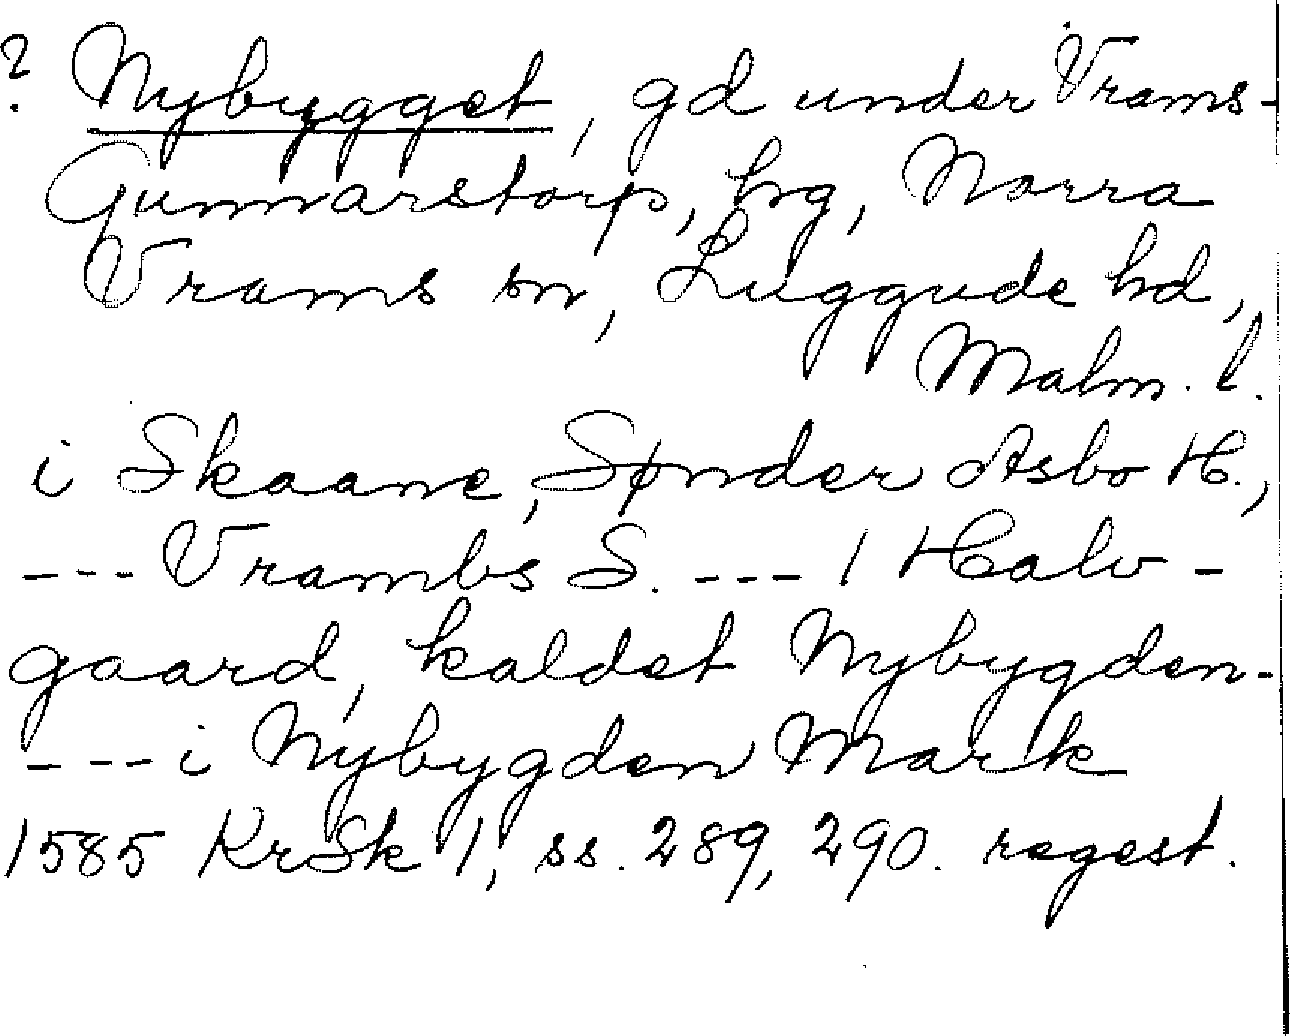 ? Nybygget, gd under Vrams-
Gunnarstorp, hg, Norra
Vrams sn, Luggude hd,
Malm. l.
i Skaane, Sønder Asbo H.,
--- Vrambs S. --- 1 Halv-
gaard, kaldet Nybygden-
--- i Nybygden Mark
1585 KrSk 1, ss. 289, 290. regest.